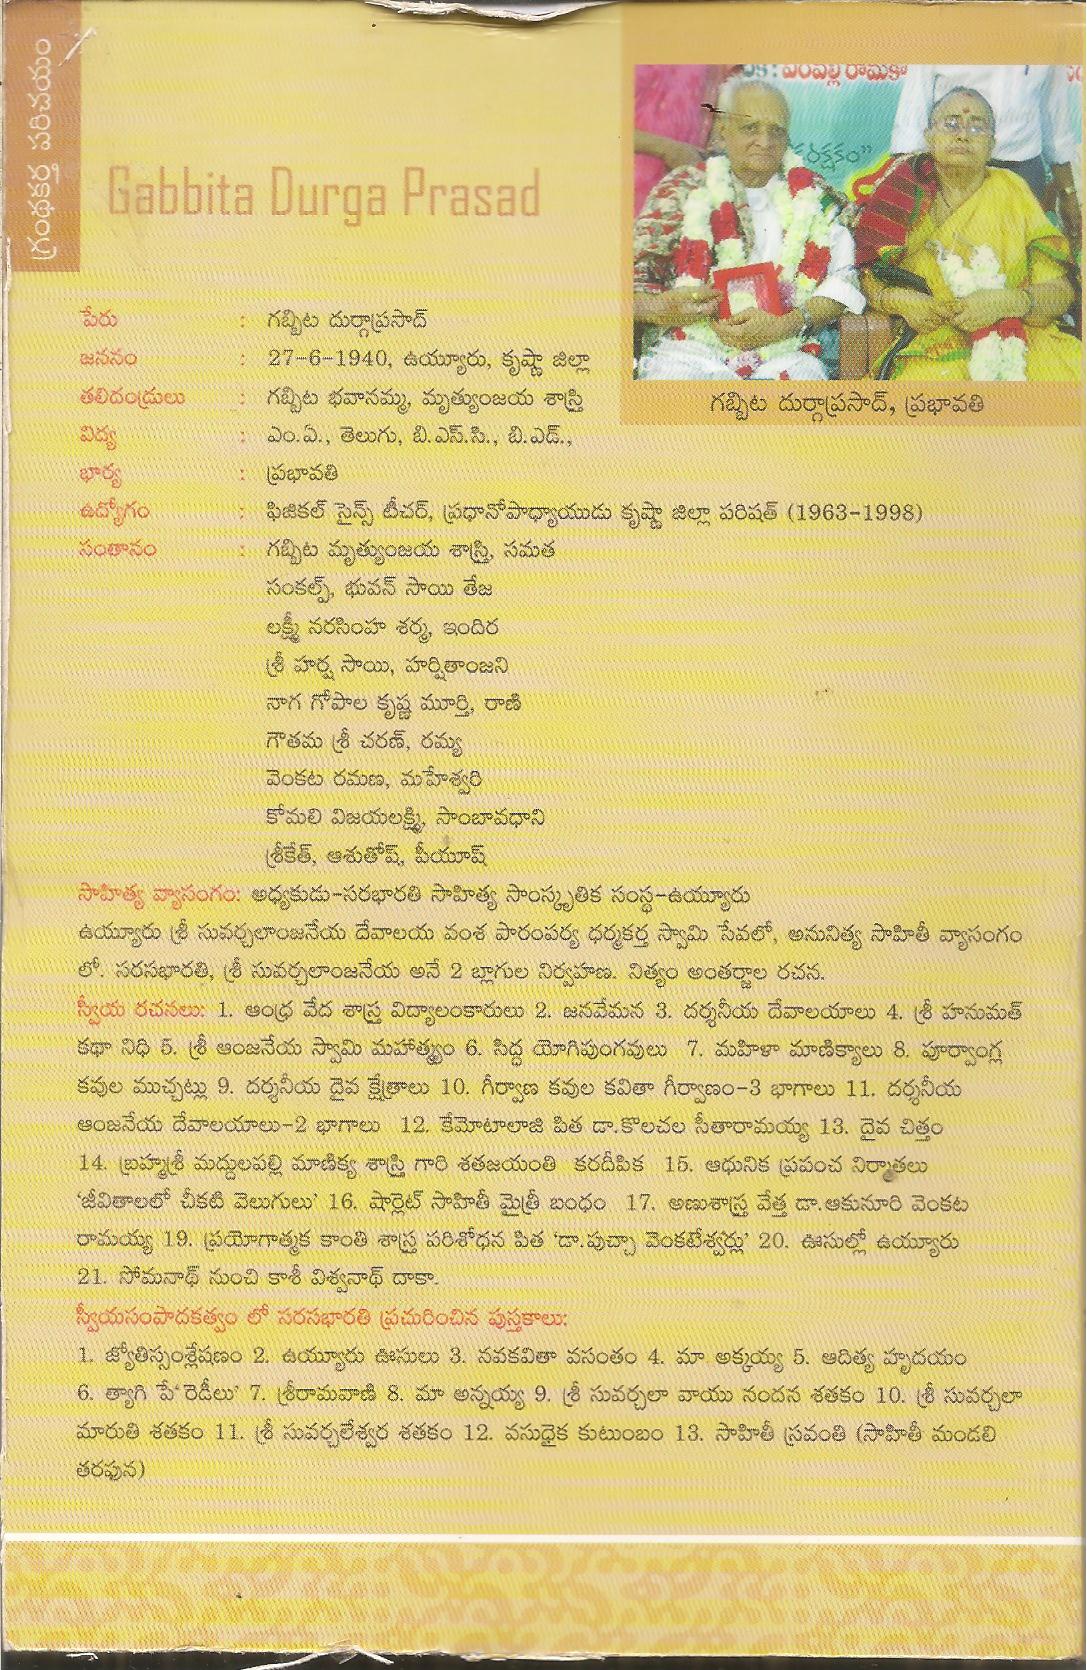 గ్రంథకర్త పరిచయం
: పంపల్లి రామకా
Gabbita Durga Prasad
గబ్బిట దుర్గాప్రసాద్, ప్రభావతి
పేరు : గబ్బిట దుర్గాప్రసాద్
జననం : 27-6-1940, ఉయ్యూరు, కృష్ణా జిల్లా
తలిదండ్రులు : గబ్బిట భవానమ్మ, మృత్యుంజయ శాస్త్రి
విద్య : ఎం.ఏ., తెలుగు, బి.ఎస్.సి., బి.ఎడ్.,
భార్య : ప్రభావతి
ఉద్యోగం : ఫిజికల్ సైన్స్ టీచర్, ప్రధానోపాధ్యాయుడు కృష్ణా జిల్లా పరిషత్ (1963-1998)
సంతానం : గబ్బిట మృత్యుంజయ శాస్త్రి, సమత
సంకల్ప్, భువన్ సాయి తేజ
లక్ష్మీ నరసింహ శర్మ, ఇందిర
శ్రీ హర్ష సాయి, హర్షితాంజని
నాగ గోపాల కృష్ణ మూర్తి, రాణి
గౌతమ శ్రీ చరణ్, రమ్య
వెంకట రమణ, మహేశ్వరి
కోమలి విజయలక్ష్మి, సాంబావధాని
శ్రీకేత్, ఆశుతోష్, పీయూష్
సాహిత్య వ్యాసంగం: అధ్యకుడు-సరభారతి సాహిత్య సాంస్కృతిక సంస్థ-ఉయ్యూరు
ఉయ్యూరు శ్రీ సువర్చలాంజనేయ దేవాలయ వంశ పారంపర్య ధర్మకర్త స్వామి సేవలో, అనునిత్య సాహితీ వ్యాసంగం
లో. సరసభారతి, శ్రీ సువర్చలాంజనేయ అనే 2 బ్లాగుల నిర్వహణ. నిత్యం అంతర్జాల రచన.
స్వీయ రచనలు: 1. ఆంధ్ర వేద శాస్త్ర విద్యాలంకారులు 2. జనవేమన 3. దర్శనీయ దేవాలయాలు 4. శ్రీ హనుమత్
కథా నిధి 5. శ్రీ ఆంజనేయ స్వామి మహాత్మ్యం 6. సిద్ధ యోగిపుంగవులు 7. మహిళా మాణిక్యాలు 8. పూర్వాంగ్ల
కవుల ముచ్చట్లు 9. దర్శనీయ దైవ క్షేత్రాలు 10. గీర్వాణ కవుల కవితా గీర్వాణం-3 భాగాలు 11. దర్శనీయ
ఆంజనేయ దేవాలయాలు-2 భాగాలు 12. కేమోటాలాజి పిత డా.కొలచల సీతారామయ్య 13. దైవ చిత్తం
14. బ్రహ్మశ్రీ మద్దులపల్లి మాణిక్య శాస్త్రి గారి శతజయంతి కరదీపిక 15. ఆధునిక ప్రపంచ నిర్మాతలు
'జీవితాలలో చీకటి వెలుగులు' 16. షార్లెట్ సాహితీ మైత్రీ బంధం 17. అణుశాస్త్ర వేత్త డా.ఆకునూరి వెంకట
రామయ్య 19. ప్రయోగాత్మక కాంతి శాస్త్ర పరిశోధన పిత 'డా.పుచ్చా వెంకటేశ్వర్లు' 20. ఊసుల్లో ఉయ్యూరు
21. సోమనాథ్ నుంచి కాశీ విశ్వనాథ్ దాకా.
స్వీయసంపాదకత్వం లో సరసభారతి ప్రచురించిన పుస్తకాలు:
1. జ్యోతిస్సంశ్లేషణం 2. ఉయ్యూరు ఊసులు 3. నవకవితా వసంతం 4. మా అక్కయ్య 5. ఆదిత్య హృదయం
6. త్యాగి పే'రెడీలు' 7. శ్రీరామవాణి 8. మా అన్నయ్య 9. శ్రీ సువర్చలా వాయు నందన శతకం 10. శ్రీ సువర్చలా
మారుతి శతకం 11. శ్రీ సువర్చలేశ్వర శతకం 12. వసుధైక కుటుంబం 13. సాహితీ స్రవంతి (సాహితీ మండలి
తరఫున)